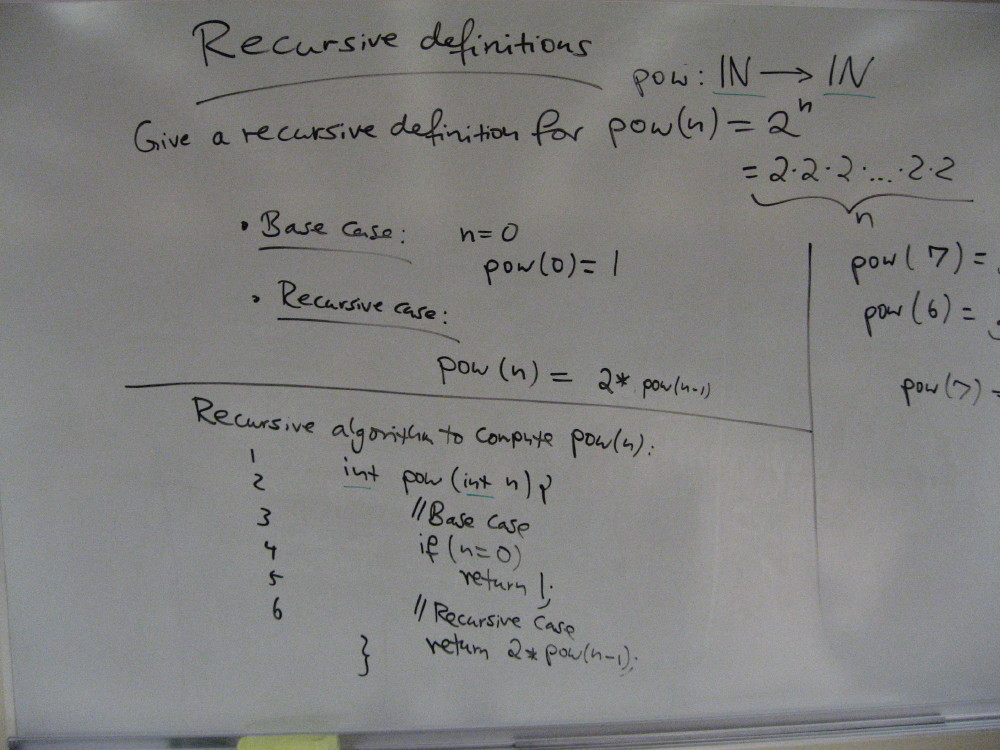 Recursive definitions
pow: IN → IN
Give a recursive definition for pow(n) = 2^n
= 2·2·2·...·2·2
n
• Base case: n=0
pow(0)= 1
• Recursive case:
pow(n) = 2* pow(n-1)
pow(7) =
pow(6) =
pow(7) =
Recursive algorithm to compute pow(n):
1
2 int pow (int n) {
3 //Base case
4 if (n=0)
5 return 1;
6 //Recursive Case
} return 2*pow(n-1);